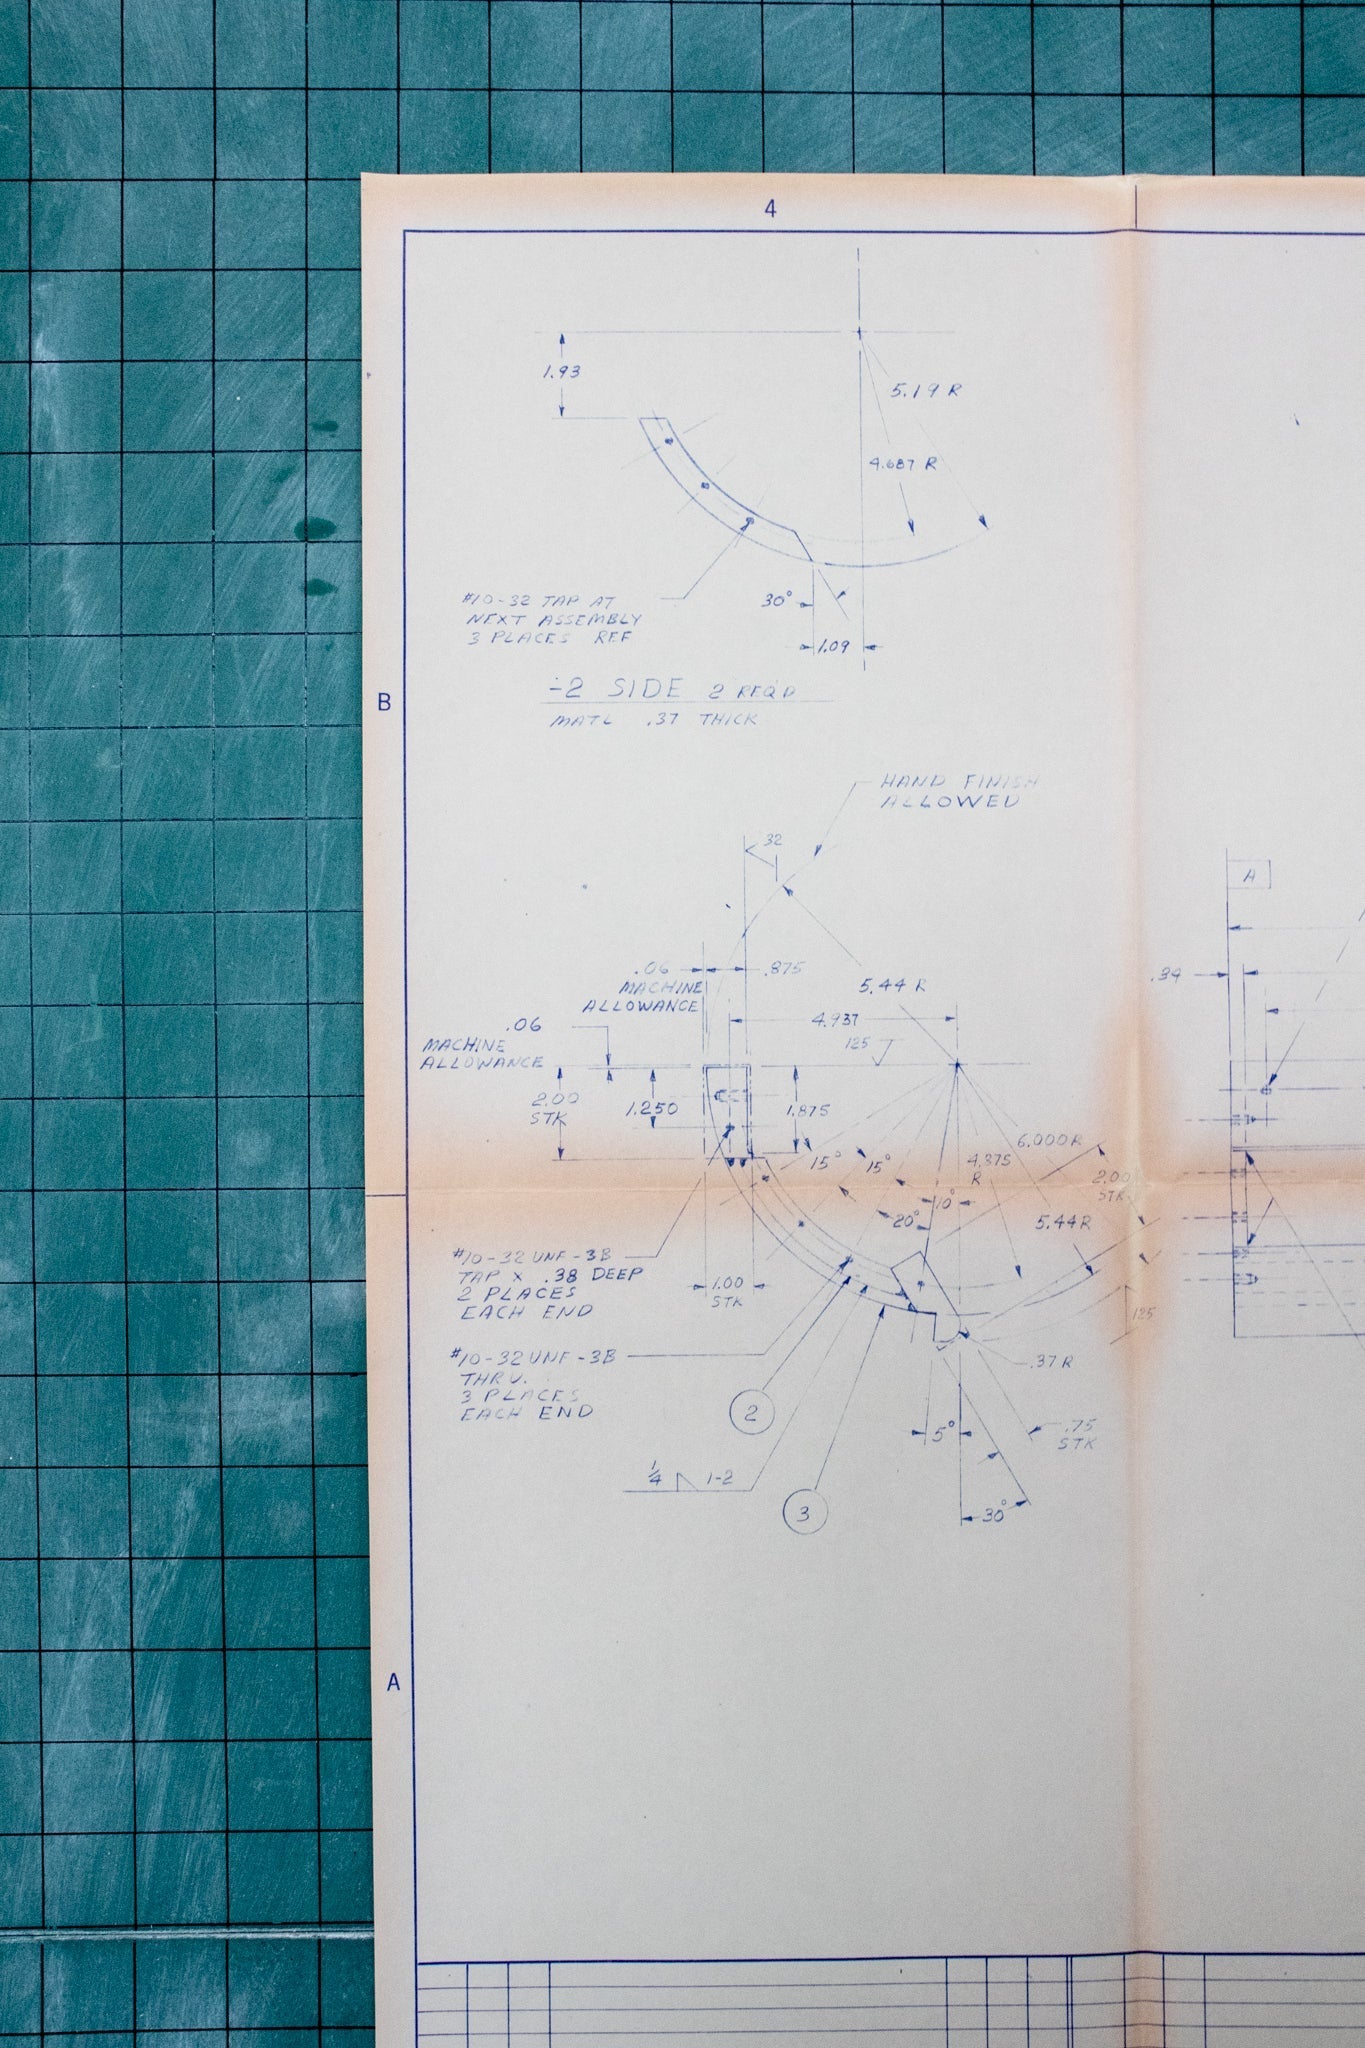 4
1.93
5.19 R
4.687 R
#10-32 TAP AT
NEXT ASSEMBLY
3 PLACES REF
30°
1.09
-2 SIDE 2 REQD
MATL .37 THICK
B
HAND FINISH
ALLOWED
32
A
.06
MACHINE
ALLOWANCE
.875
5.44 R
.39
4.937
125
.06
MACHINE
ALLOWANCE
2.00
STK
1.250
1.875
15°
15°
6.000 R
4.375
R
2.00
STK
10°
20°
5.44 R
#10-32 UNF-3B
TAP X .38 DEEP
2 PLACES
EACH END
1.00
STK
125
#10-32 UNF-3B
THRU.
3 PLACES
EACH END
.37 R
2
5°
.75
STK
1/4 1-2
3
30°
A